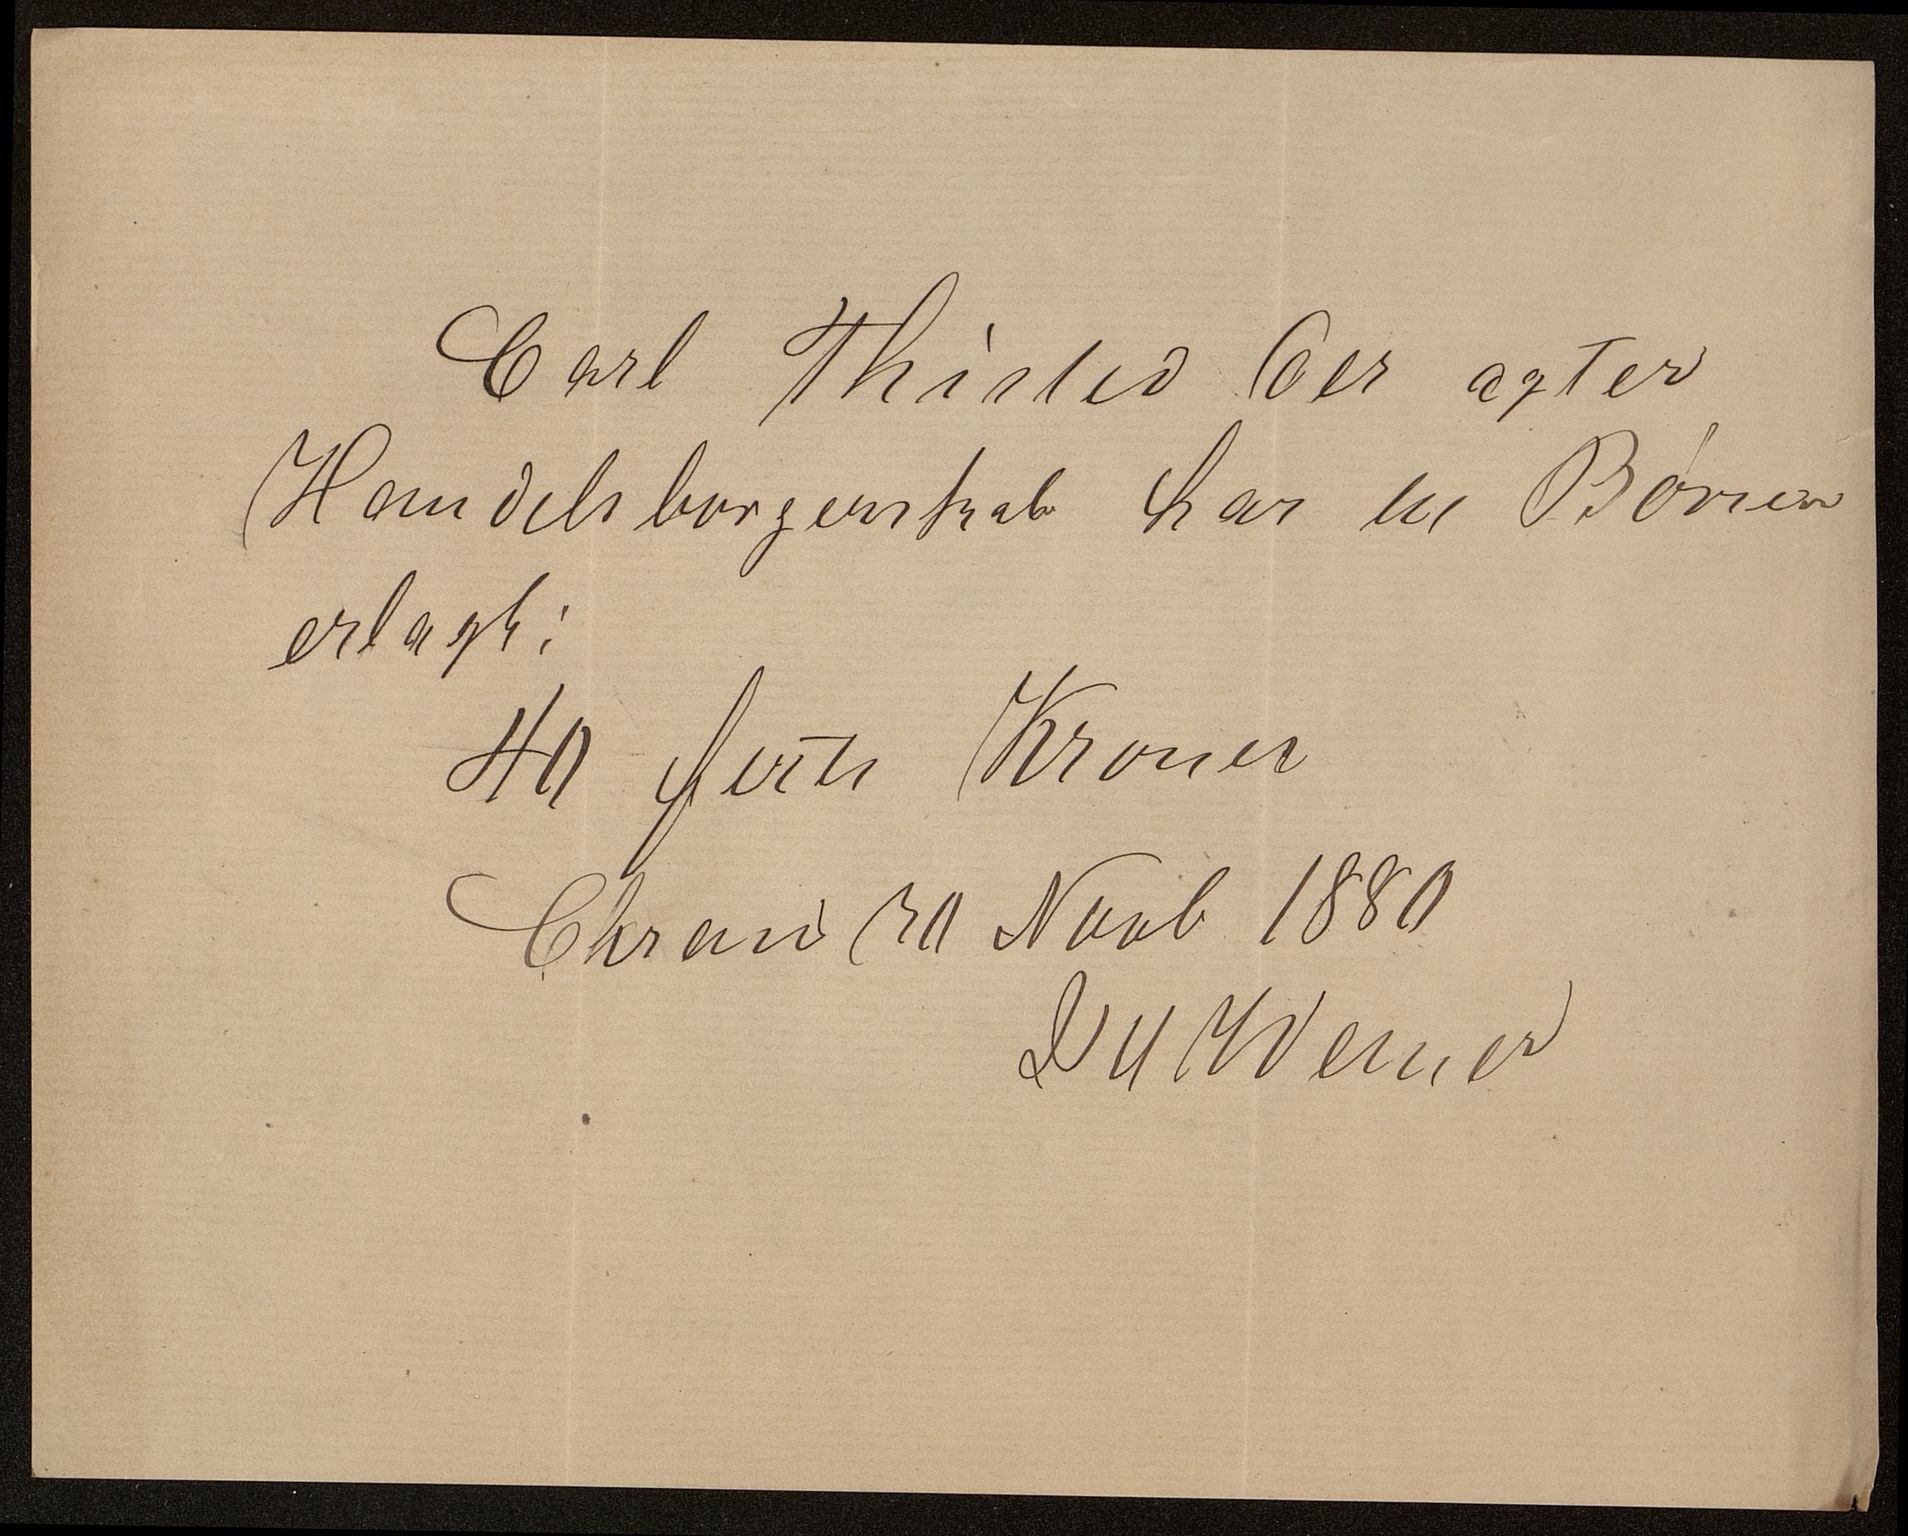 Carl Thisted der agter
Handelsborgerskab har til Børsen
erlagt:
40 firti Kroner
Chrania 30 Novb 1880
Werner